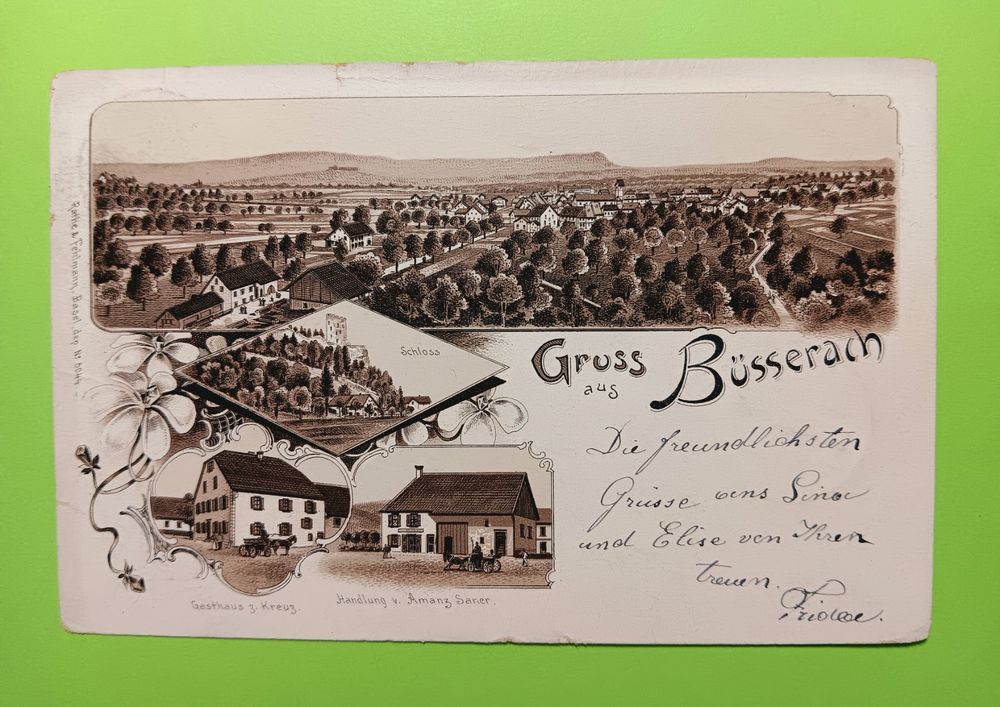 Rathe & Fehlmann, Basel, dep. No
Schloss
Gruss
aus
Büsserach
Die freundlichsten
Grüsse ans Lina
und Elise von Ihren
treuen.
Frida.
Gasthaus z. Kreuz.
Handlung v. Amanz Saner.